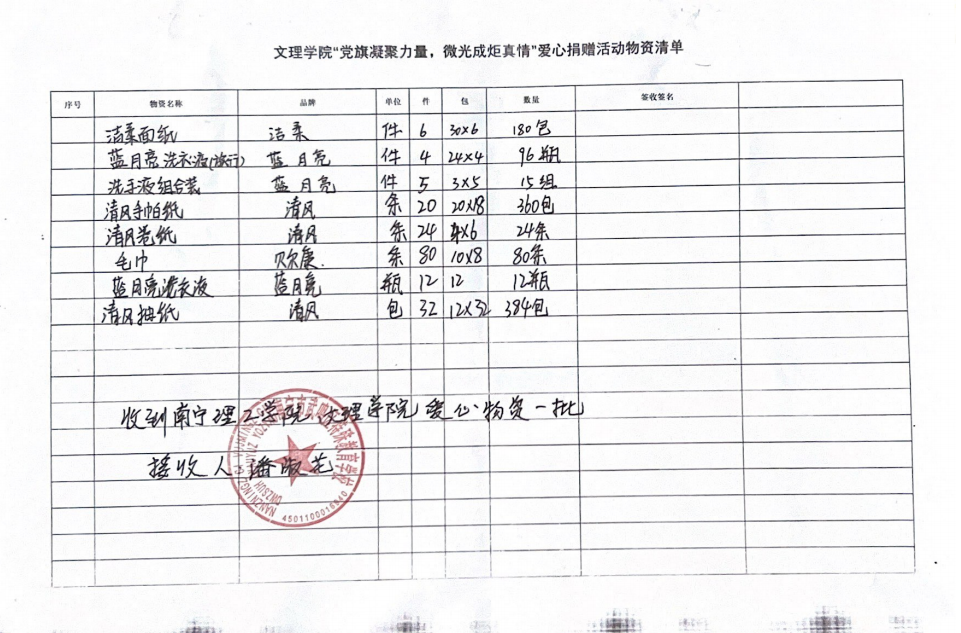 文理学院“党旗凝聚力量，微光成炬真情”爱心捐赠活动物资清单
序号 物资名称 品牌 单位 件 包 数量 签收签名
洁柔面纸 洁柔 件 6 30×6 180包
蓝月亮洗衣液(旅行) 蓝月亮 件 4 24×4 96瓶
洗手液组合装 蓝月亮 件 5 3×5 15组
清风手帕纸 清风 条 20 20×18 360包
清风卷纸 清风 条 24 4×6 24条
毛巾 条 80 10×8 80条
蓝月亮洗衣液 蓝月亮 瓶 12 12 12瓶
清风抽纸 清风 包 32 12×32 384包
收到南宁理工学院文理学院爱心物资一批
接收人 潘
4501100016840